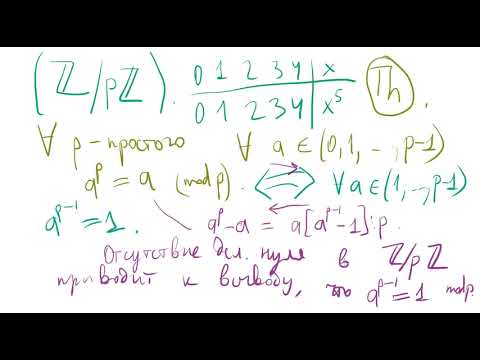 (ℤ/pℤ). 0 1 2 3 4 | x Th.
0 1 2 3 4 | x⁵
∀ p - простого ∀ a ∈ (0,1, .., p-1)
aᵖ = a (mod p). ⟺ ∀ a ∈ (1, .., p-1)
aᵖ⁻¹ = 1. aᵖ - a = a[aᵖ⁻¹ - 1] ⋮ p.
Отсутствие дел. нуля в ℤ/pℤ
приводит к выводу, что aᵖ⁻¹ = 1 mod p.